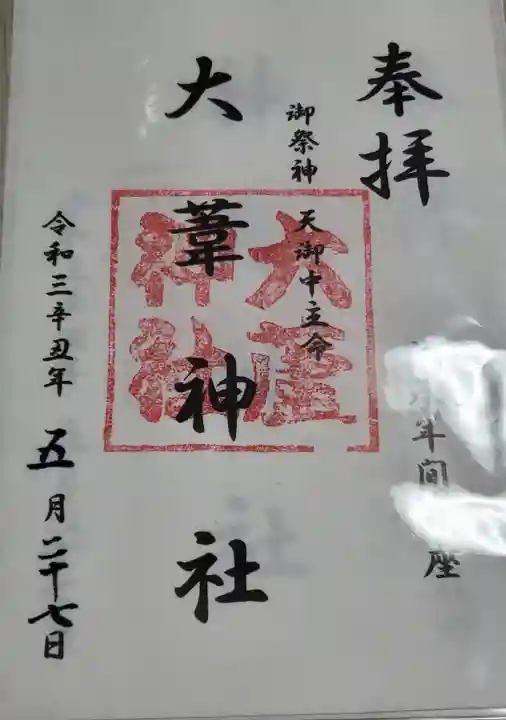 奉拝
年間
座
御祭神 天御中主命
大葦神社
大葦神社
令和三辛丑年 五月二十七日